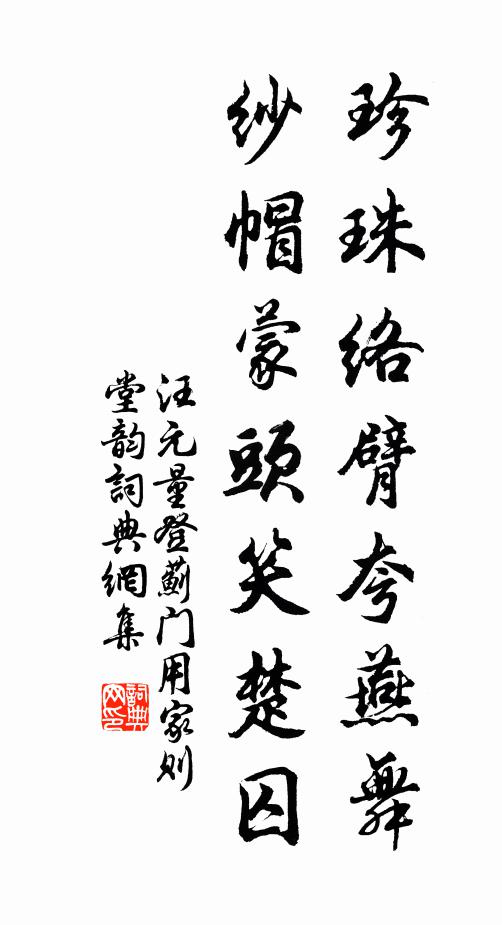 珍珠絡臂夸燕舞
紗帽蒙頭笑楚囚
汪元量登薊门用家则
堂韵詞典網集
詞典
网印